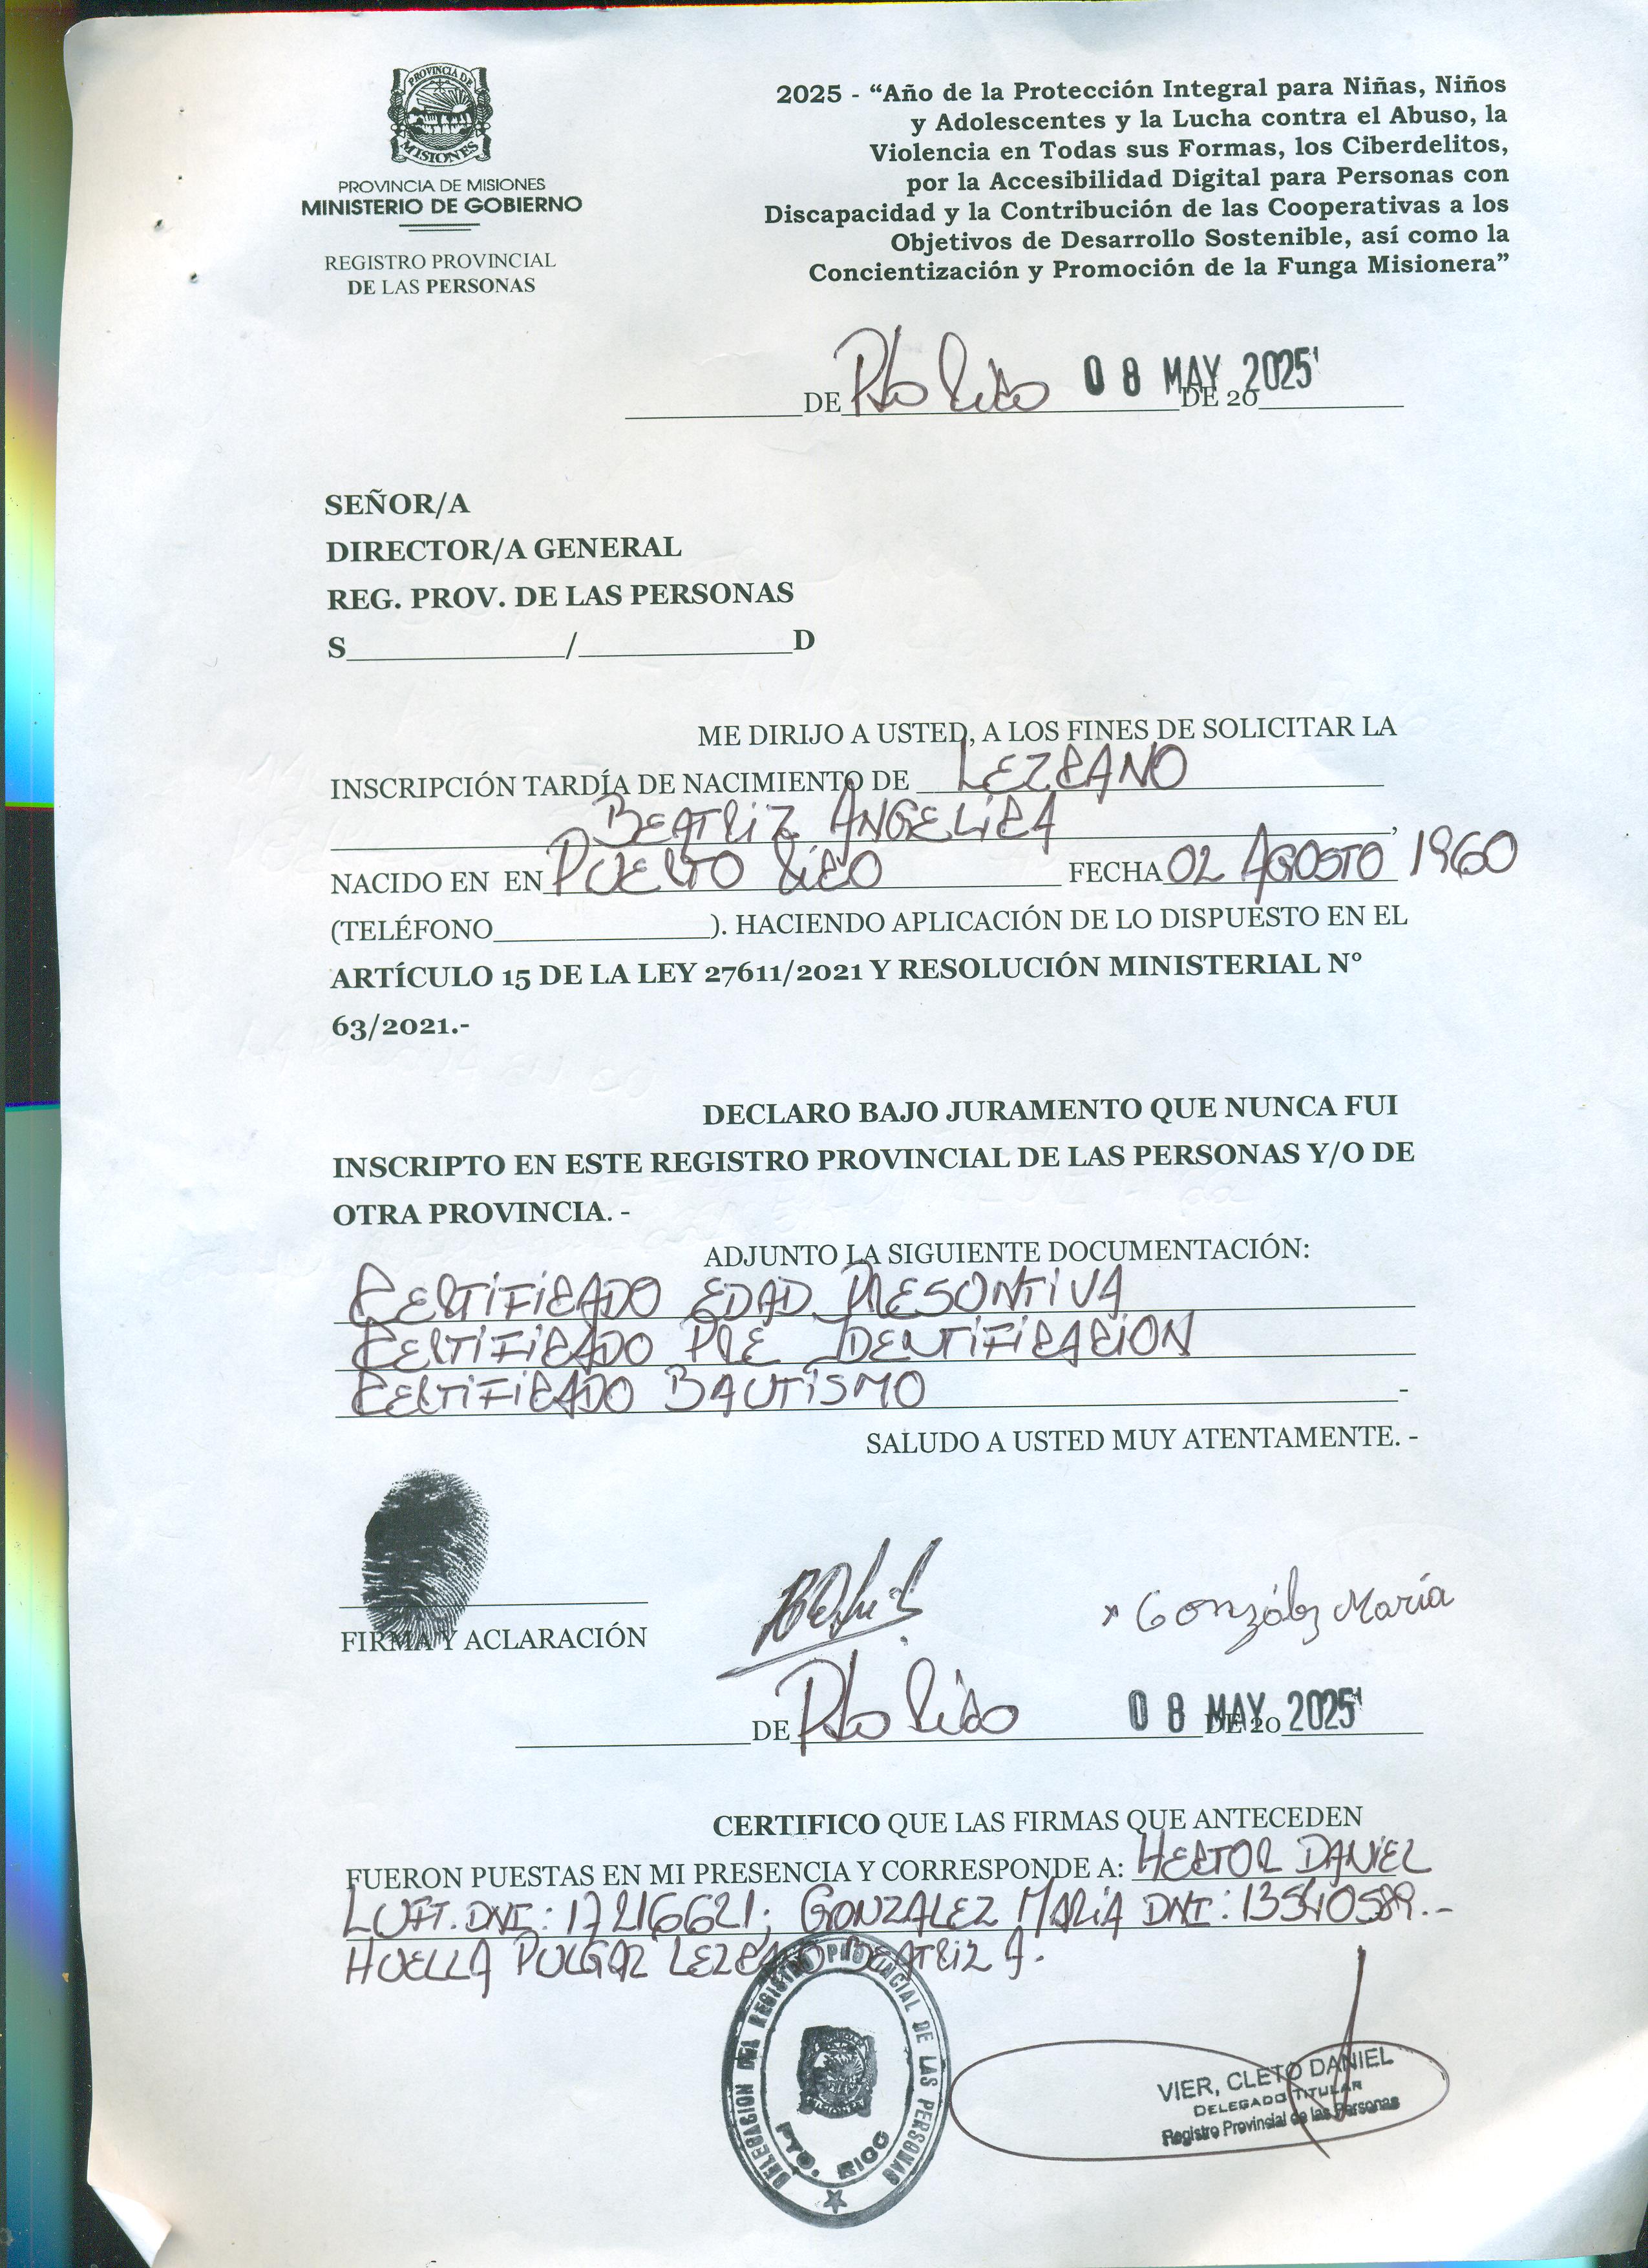 PROVINCIA DE
MISIONES
PROVINCIA DE MISIONES
MINISTERIO DE GOBIERNO
REGISTRO PROVINCIAL
DE LAS PERSONAS
2025 - “Año de la Protección Integral para Niñas, Niños
y Adolescentes y la Lucha contra el Abuso, la
Violencia en Todas sus Formas, los Ciberdelitos,
por la Accesibilidad Digital para Personas con
Discapacidad y la Contribución de las Cooperativas a los
Objetivos de Desarrollo Sostenible, así como la
Concientización y Promoción de la Funga Misionera”
__________DE Pto Rico 08 MAY 2025 DE 20__________
SEÑOR/A
DIRECTOR/A GENERAL
REG. PROV. DE LAS PERSONAS
S______________/______________D
ME DIRIJO A USTED, A LOS FINES DE SOLICITAR LA
INSCRIPCIÓN TARDÍA DE NACIMIENTO DE LEZCANO
BEATRIZ ANGELICA,
NACIDO EN EN PUERTO RICO FECHA 02 AGOSTO 1960
(TELÉFONO______________). HACIENDO APLICACIÓN DE LO DISPUESTO EN EL
ARTÍCULO 15 DE LA LEY 27611/2021 Y RESOLUCIÓN MINISTERIAL N°
63/2021.-
DECLARO BAJO JURAMENTO QUE NUNCA FUI
INSCRIPTO EN ESTE REGISTRO PROVINCIAL DE LAS PERSONAS Y/O DE
OTRA PROVINCIA. -
ADJUNTO LA SIGUIENTE DOCUMENTACIÓN:
CERTIFICADO EDAD PRESONTIVA
CERTIFICADO PRE IDENTIFICACION
CERTIFICADO BAUTISMO -
SALUDO A USTED MUY ATENTAMENTE. -
FIRMA Y ACLARACIÓN
x González María
__________DE Pto Rico 08 MAY 2025 DE 20__________
CERTIFICO QUE LAS FIRMAS QUE ANTECEDEN
FUERON PUESTAS EN MI PRESENCIA Y CORRESPONDE A: HECTOR DANIEL
LUFT. DNI: 17216621; GONZALEZ MARIA DNI: 13540589.-
HUELLA PULGAR LEZCANO BEATRIZ A.
DELEGACION DEL REGISTRO PROVINCIAL DE LAS PERSONAS
PTO. RICO
VIER, CLETO DANIEL
DELEGADO TITULAR
Registro Provincial de las Personas